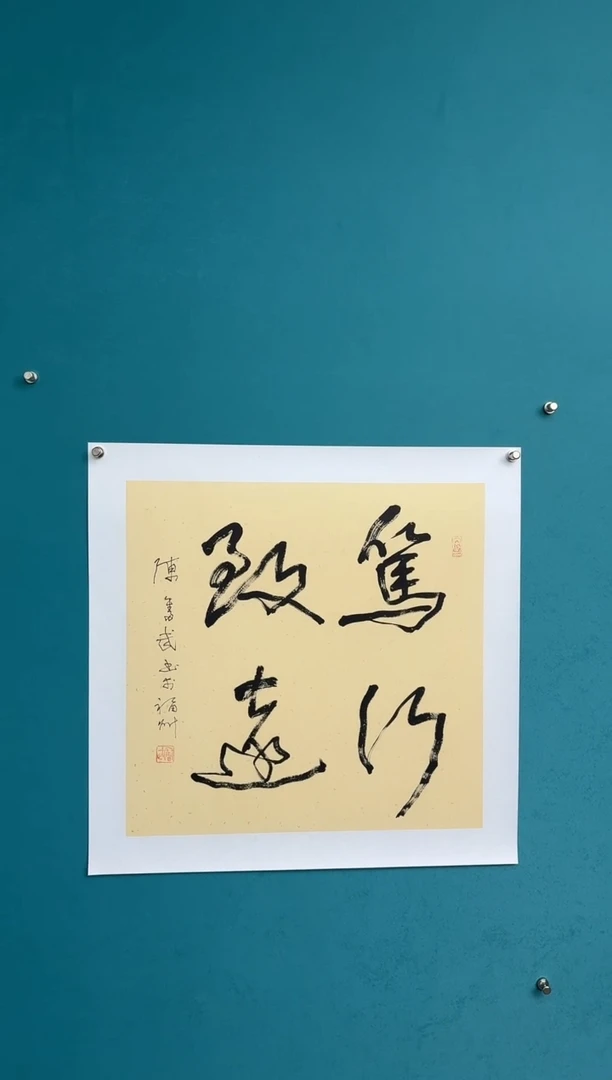 篤行
致遠
陳奮武書於福州